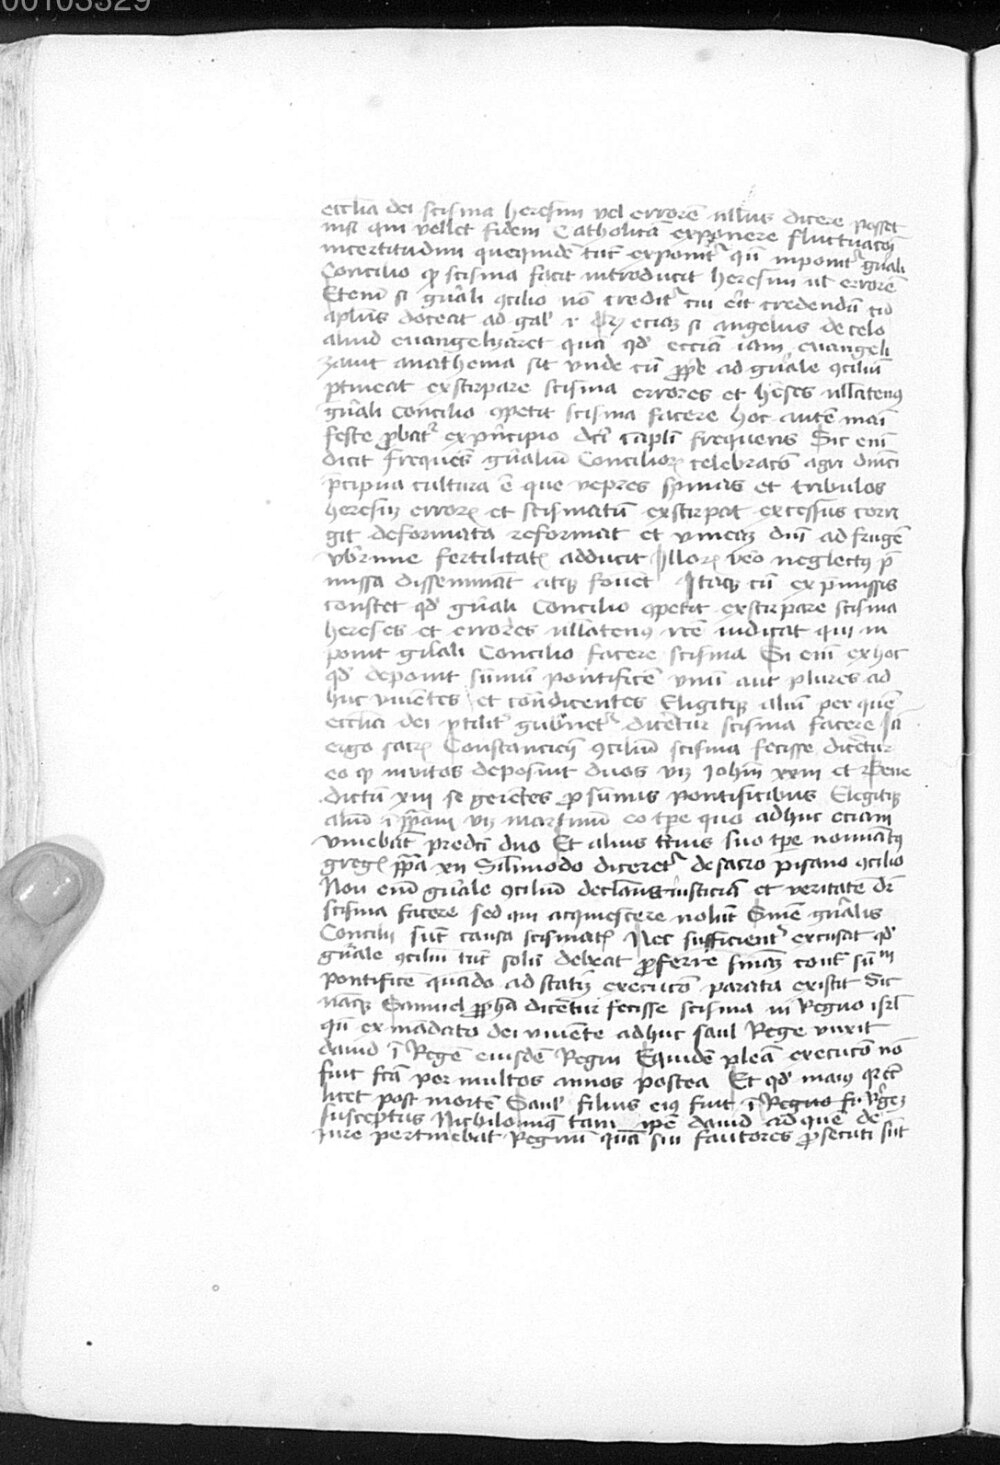 00103329
ecclia dei scisma heresim vel errorē ullus dicere posset
nisi qui vellet fidem Catholicā exponere fluctuacōi
incertitudini quequidē tūc exponitr qn̄ inponitr gnāli
Concilio qp scisma facit introducit heresim ut errorē
Etem si gnāli ꝯcilio nō creditr cui erit credendū
aplus docecit ad gal' etiaʒ si angelus de celo
aliud euangelizaret quā qd' eccīā iam euangeli
zauit anathema sit Vnde cū ꝓpe ad gnāle ꝯciliū
ptineat exstirpare scisma errores et heses ullatenꝰ
gnāli Concilio ꝯpetit scisma facere hoc autē mani
feste ꝓbatr ex pncipio dcī capli frequens Sic eni
dicit frequēs gnāliū Conciliorꝫ celebracō agri dnīci
pcipua cultura ē que vepres spinas et tribulos
heresiū errorꝫ et scismatū exstirpat excessus corri
git deformata reformat et vineaʒ dnī ad frugē
vbrime fertilitatꝫ adducit Illorꝫ vēo neglectꝰ p̄
missa disseminat atqʒ fouet Itaqʒ cū ex pmissis
constet qd' gnāli Concilio ꝯpetit exstirpare scisma
hereses et errores ullatenꝰ rcē iudicat qui in
ponit gnāli Concilio facere scisma Si eni ex hoc
qd' deponit sūmū pontificē vnū aut plures ad
huc viuentes et contdicentes Eligitqʒ aliū per quē
ecclia dei vtilitr gubnetr diceretur scisma facere
ergo sacrꝫ Constanciēn ꝯciliū scisma fecisse dicetur
eo qp inuitos deposuit duos vꝫ Johēm xxiii et Bene
dictū xiii se gerētes ꝓ sūmis pontificibus Elegitqʒ
aliū ī ppam vꝫ martinū eo tpe quo adhuc etiam
viuebāt predicti duo Et alius tcius suo tpe noīatꝰ
gregꝫ ppa xii Silimodo diceretr de sacro pisano ꝯcilio
Non eni gnāle ꝯciliū declarās iusticiā et veritatē dr̄
scisma facere sed qui acquiescere nolūt Smē gnālis
Concilii sūt causa scismatꝫ Nec sufficientr excusat qd'
gnāle ꝯciliū tūc solū debeat ꝓferre smāʒ cont̄ sūm
pontificē quādo ad statī executō parata existit Sic
nāqʒ Samuel ꝓpha dicetur fecisse scisma in Regno isrl
qn̄ ex mādato dei viuente adhuc saul Rege vnxit
dauid ī Regē eiusdē Regni Equidē pleā executō nō
fuit fcā per multos annos postea Et qd' maiꝰ
licet post mortē Saul' filius eiꝰ fuit ī Regno
susceptus Nichilominꝰ tam ipē dauid ad quē de
iure pertinebat Regnū quā sui fautores ꝓsecuti sūt